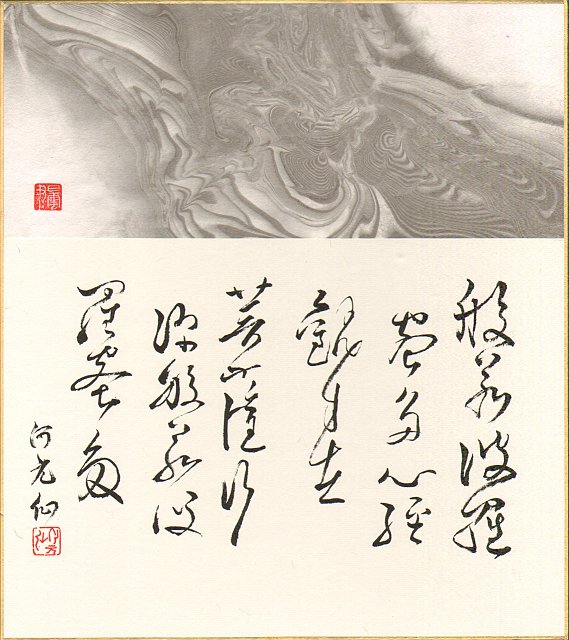 般若波羅
蜜多心經
觀自在
菩薩行
深般若波
羅蜜多